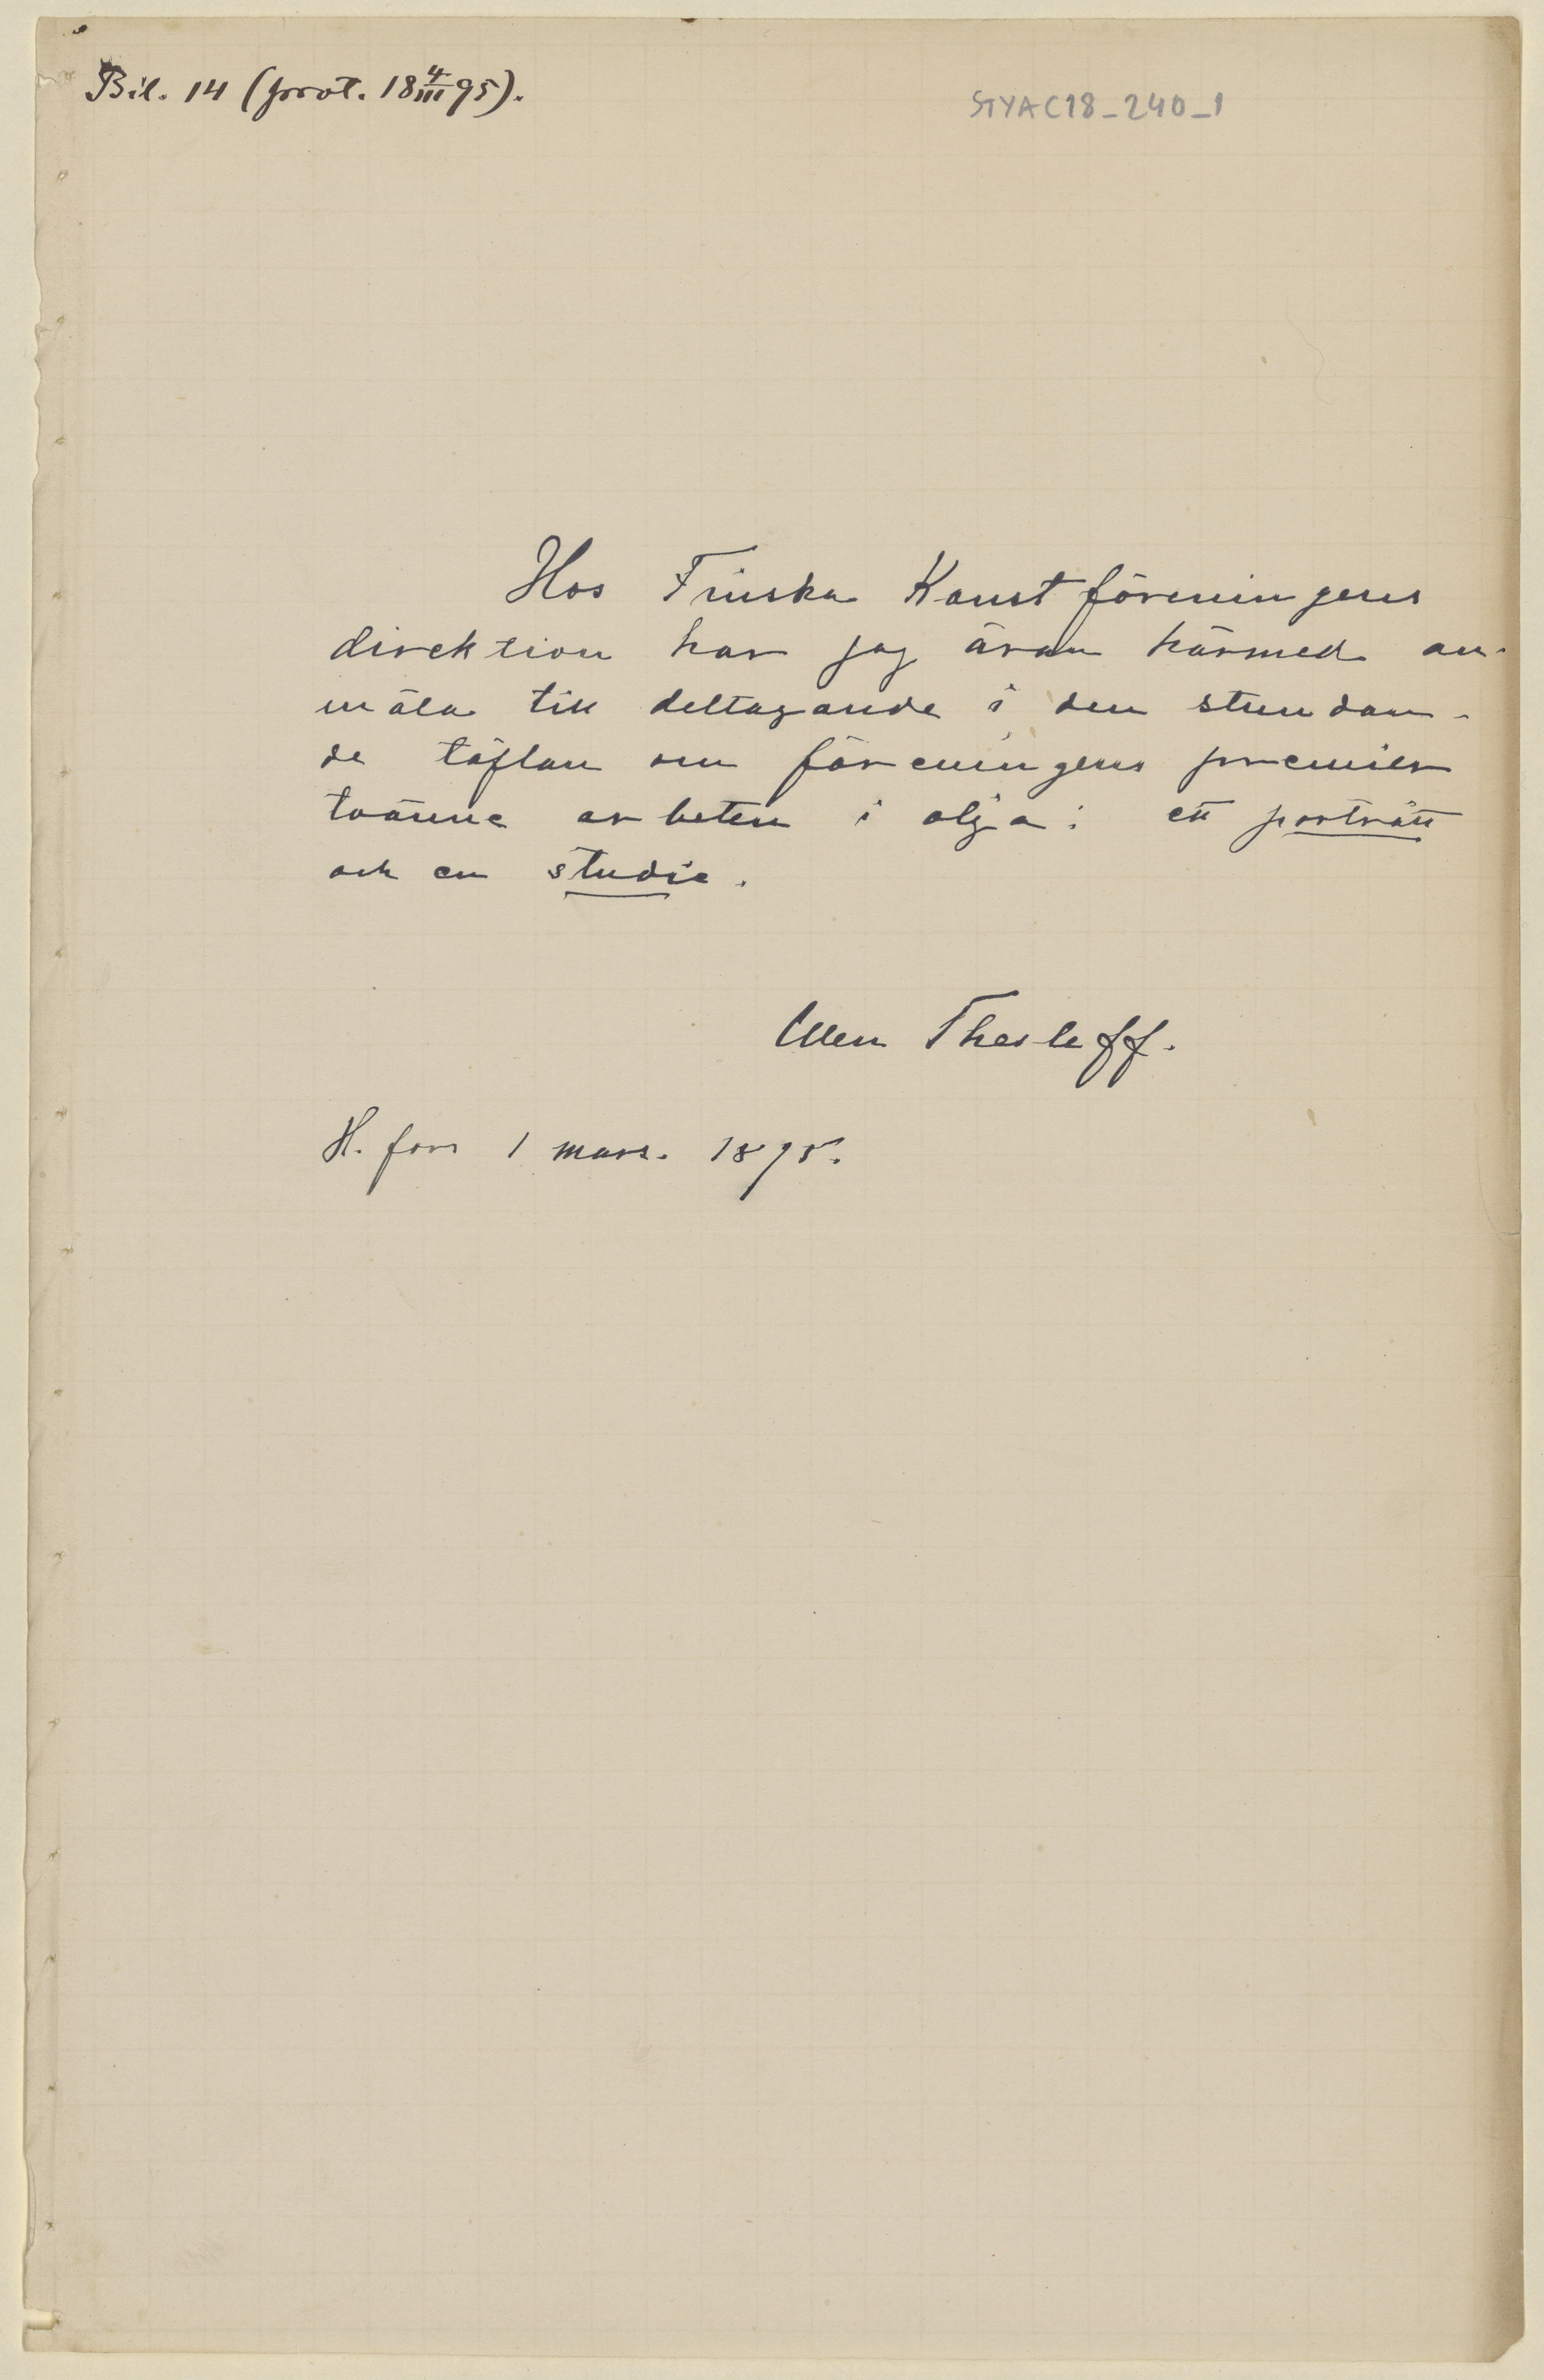 Bil. 14 (prot. 18 4/III 95).
STYA C18_240_1
Hos Finska Konstföreningens
direktion har jag äran härmed an-
mäla till deltagande i den stundan-
de täflan om föreningens premier
tvänne arbeten i olja: ett porträtt
och en studie.
Ellen Thesleff.
H. fors 1 mars. 1895.